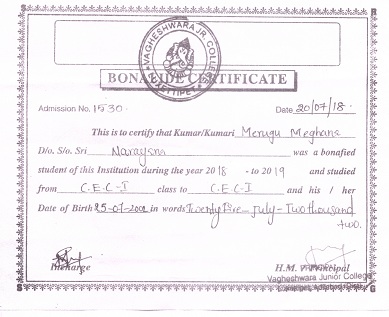 VAGHESHWARA JR. COLLEGE
LUXETTIPET
BONAFIDE CERTIFICATE
Admission No. 1530 Date 20/07/18
This is to certify that Kumar/Kumari Merugu Meghana
D/o. S/o. Sri Narayana was a bonafied
student of this Institution during the year 2018 - to 2019 and studied
from C.E.C-I class to C.E.C-I and his / her
Date of Birth 25-07-2002 in words Twenty Five July - Two thousand
two.
Incharge H.M. / Principal
Vagheshwara Junior College